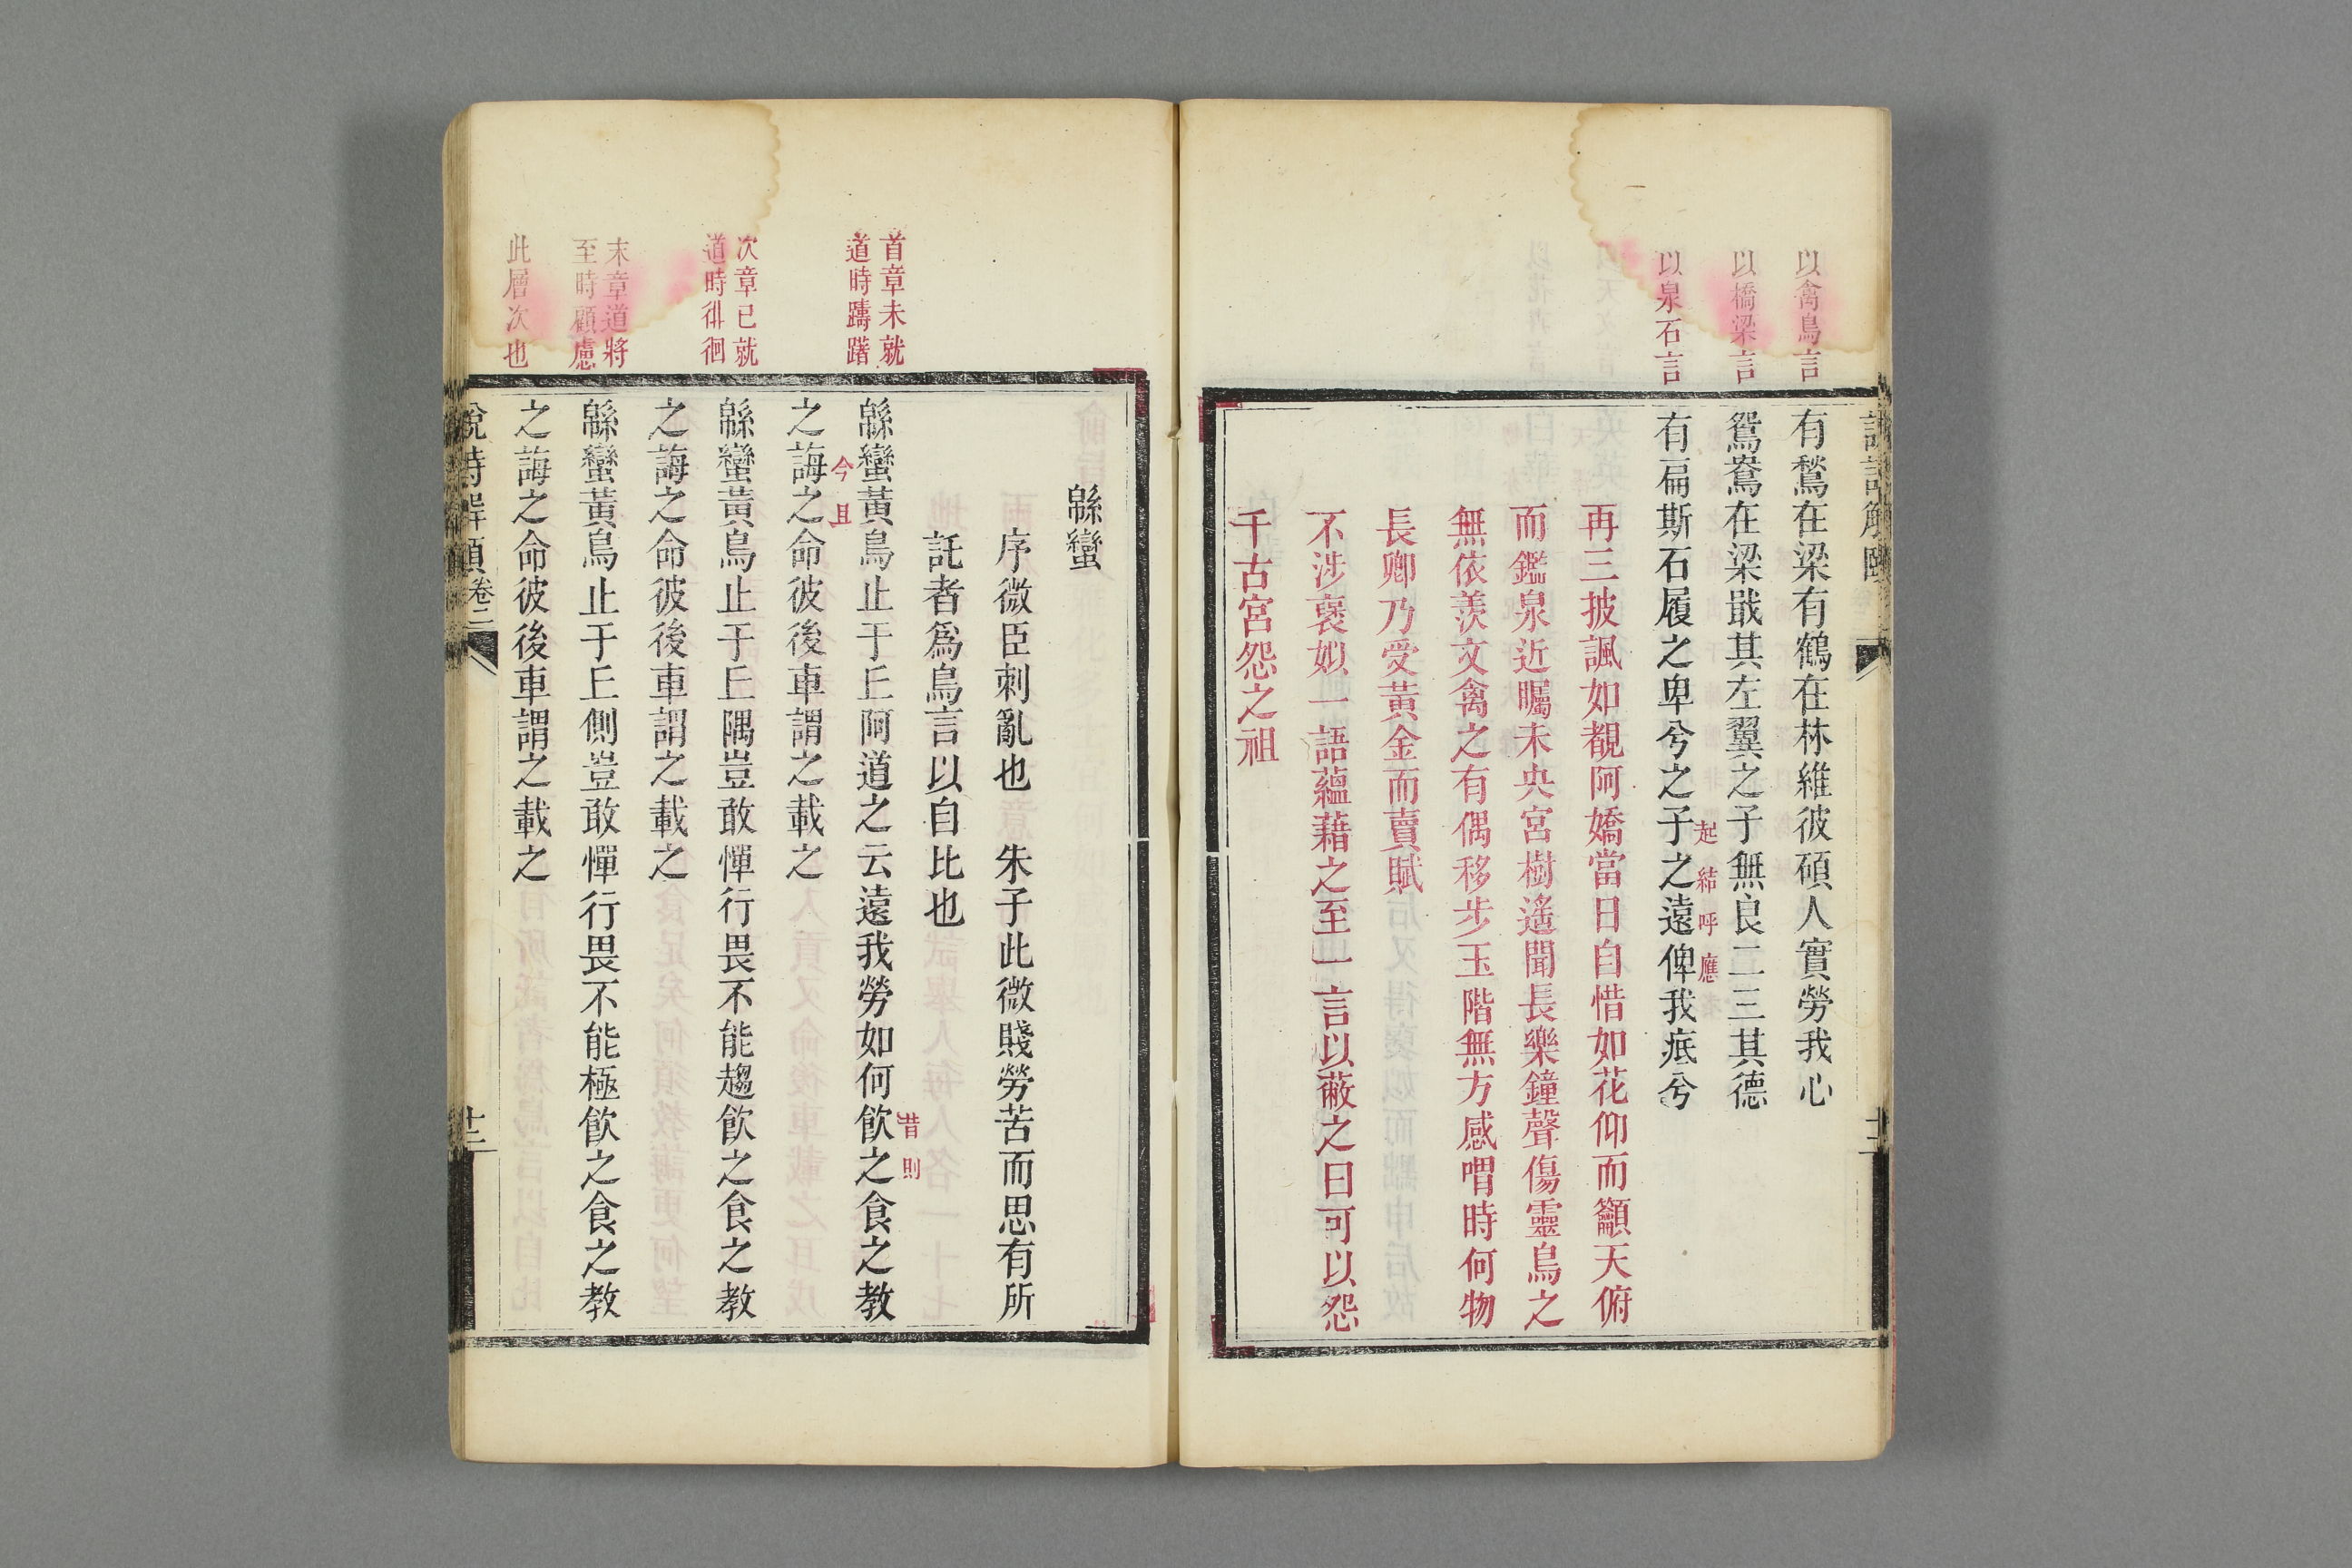 以禽鳥言
以橋梁言
以泉石言
有鶖在梁有鶴在林維彼碩人實勞我心
鴛鴦在梁戢其左翼之子無良二三其德
有扁斯石履之卑兮之子之遠俾我疧兮
起結呼應
再三披諷如覩阿嬌當日自惜如花仰而籲天俯
而鑑泉近矚未央宮樹遙聞長樂鐘聲傷靈鳥之
無依羨文禽之有偶移步玉階無方感喟時何物
長卿乃受黃金而賣賦
不涉褒姒一語蘊藉之至一言以蔽之曰可以怨
千古宮怨之祖
首章未就
道時躊躇
次章已就
道時徘徊
末章道將
至時顧慮
此層次也
緜蠻
序微臣刺亂也　朱子此微賤勞苦而思有所
託者爲鳥言以自比也
緜蠻黃鳥止于丘阿道之云遠我勞如何飮之食之教
昔則
之誨之命彼後車謂之載之
今且
緜蠻黃鳥止于丘隅豈敢憚行畏不能趨飮之食之教
之誨之命彼後車謂之載之
緜蠻黃鳥止于丘側豈敢憚行畏不能極飮之食之教
之誨之命彼後車謂之載之
說詩解頤 卷二
十二